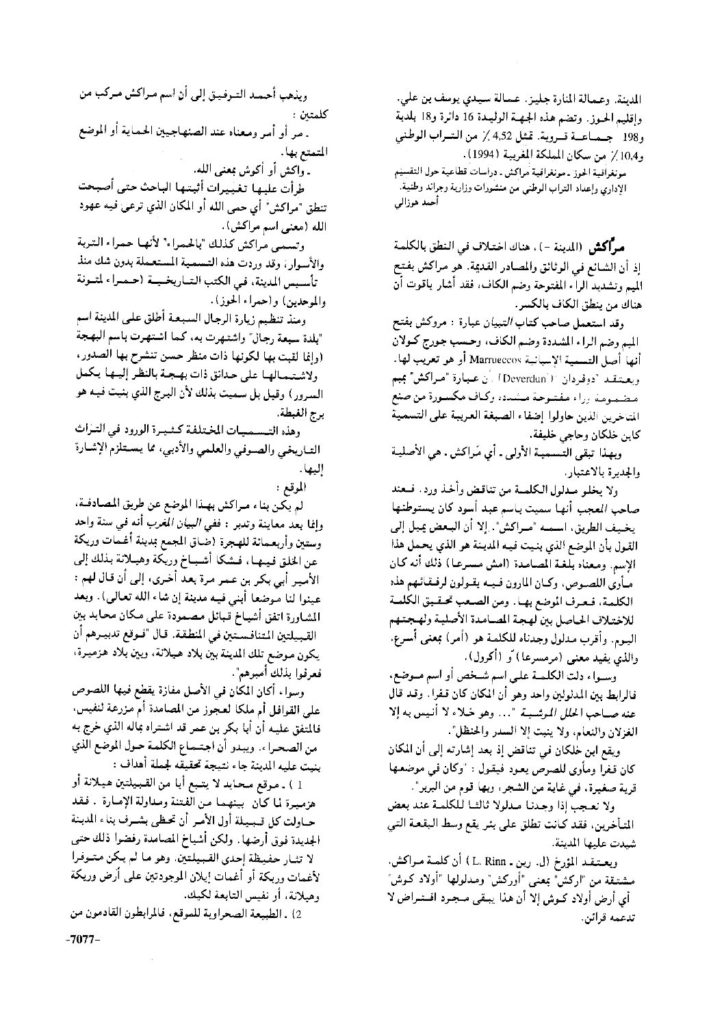 المدينة. وعمالة المنارة جليز. عمالة سيدي يوسف بن علي.
وإقليم الحوز. وتضم هذه الجهة الوليدة 16 دائرة و18 بلدية
و198 جماعة قروية. تمثل 4,52 ٪ من التراب الوطني
و10,4 ٪ من سكان المملكة المغربية (1994).
مونغرافية الحوز ـ مونغرافية مراكش ـ دراسات قطاعية حول التقسيم
الإداري وإعداد التراب الوطني من منشورات وزارية وجرائد وطنية.
أحمد هوزالي
مرّاكش (المدينة -)، هناك اختلاف في النطق بالكلمة
إذ أن الشائع في الوثائق والمصادر القديمة. هو مراكش بفتح
الميم وتشديد الراء المفتوحة وضم الكاف، فقد أشار ياقوت أن
هناك من ينطق الكاف بالكسر.
وقد استعمل صاحب كتاب التبيان عبارة : مروكش بفتح
الميم وضم الراء المشددة وضم الكاف، وحسب جورج كولان
أنها أصل التسمية الإسبانية Marrueccos أو هو تعريب لها.
ويعتقد "دوفردان" (Deverdun) أن عبارة "مراكش" بميم
مضمومة وراء مفتوحة مشددة، وكاف مكسورة من صنع
المتأخرين الذين حاولوا إضفاء الصيغة العربية على التسمية
كابن خلكان وحاجي خليفة.
وبهذا تبقى التسمية الأولى ـ أي مَراكش ـ هي الأصلية
والجديرة بالاعتبار.
ولا يخلو مدلول الكلمة من تناقض وأخذ ورد. فعند
صاحب المعجب أنها سميت باسم عبد أسود كان يستوطنها
يخيف الطريق، اسمه "مراكش". إلا أن البعض يميل إلى
القول بأن الموضع الذي بنيت فيه المدينة هو الذي يحمل هذا
الإسم. ومعناه بلغة المصامدة (امش مسرعا) ذلك أنه كان
مأوى اللصوص، وكان المارون فيه يقولون لرفقائهم هذه
الكلمة، فعرف الموضع بها. ومن الصعب تحقيق الكلمة
للاختلاف الحاصل بين لهجة المصامدة الأصلية ولهجتهم
اليوم. وأقرب مدلول وجدناه للكلمة هو (أمر) بمعنى أسرع،
والذي يفيد معنى (مرمسرعا) و (أكرول).
وسواء دلت الكلمة على اسم شخص أو اسم موضع،
فالرابط بين المدلولين واحد وهو أن المكان كان قفرا. وقد قال
عنه صاحب الحلل الموشية "... وهو خلاء لا أنيس به إلا
الغزلان والنعام، ولا ينبت إلا السدر والحنظل".
ويقع ابن خلكان في تناقض إذ بعد إشارته إلى أن المكان
كان قفرا ومأوى للصوص يعود فيقول : "وكان في موضعها
قرية صغيرة، في غابة من الشجر، وبها قوم من البربر".
ولا نعجب إذا وجدنا مدلولا ثالثا للكلمة عند بعض
المتأخرين، فقد كانت تطلق على بئر يقع وسط البقعة التي
شيدت عليها المدينة.
ويعتقد المؤرخ (ل. رين ـ L. Rinn) أن كلمة مراكش.
مشتقة من "اركش" بمعنى "أوركش" ومدلولها "أولاد كوش"
أي أرض أولاد كوش إلا أن هذا يبقى مجرد افتراض لا
تدعمه قرائن.
ويذهب أحمد التوفيق إلى أن اسم مراكش مركب من
كلمتين :
ـ مر أو أمر ومعناه عند الصنهاجيين الحماية أو الموضع
المتمتع بها.
ـ واكش أو أكوش بمعنى الله.
طرأت عليها تغييرات أثبتها الباحث حتى أصبحت
تنطق "مراكش" أي حمى الله أو المكان الذي ترعى فيه عهود
الله (معنى اسم مراكش).
وتسمى مراكش كذلك "بالحمراء" لأنها حمراء التربة
والأسوار، وقد وردت هذه التسمية المستعملة بدون شك منذ
تأسيس المدينة، في الكتب التاريخية (حمراء لمتونة
والموحدين) و(حمراء الحوز).
ومنذ تنظيم زيارة الرجال السبعة أطلق على المدينة اسم
"بلدة سبعة رجال" واشتهرت به، كما اشتهرت باسم البهجة
(وإنما لقبت بها لكونها ذات منظر حسن تنشرح بها الصدور،
ولاشتمالها على حدائق ذات بهجة بالنظر إليها يكمل
السرور) وقيل بل سميت بذلك لأن البرج الذي بنيت فيه هو
برج الغبطة.
وهذه التسميات المختلفة كثيرة الورود في التراث
التاريخي والصوفي والعلمي والأدبي، مما يستلزم الإشارة
إليها.
الموقع :
لم يكن بناء مراكش بهذا الموضع عن طريق المصادفة،
وإنما بعد معاينة وتدبر : ففي البيان المغرب أنه في سنة واحد
وستين وأربعمائة للهجرة (ضاق المجمع بمدينة أغمات وريكة
عن الخلق فيها، فشكا أشياخ وريكة وهيلانة بذلك إلى
الأمير أبي بكر بن عمر مرة بعد أخرى، إلى أن قال لهم :
عينوا لنا موضعا أبني فيه مدينة إن شاء الله تعالى). وبعد
المشاورة اتفق أشياخ قبائل مصمودة على مكان محايد بين
القبيلتين المتنافستين في المنطقة. قال "فوقع تدبيرهم أن
يكون موضع تلك المدينة بين بلاد هيلانة، وبين بلاد هزميرة،
فعرفوا بذلك أميرهم".
وسواء أكان المكان في الأصل مفازة يقطع فيها اللصوص
على القوافل أم ملكا لعجوز من المصامدة أم مزرعة لنفيس،
فالمتفق عليه أن أبا بكر بن عمر قد اشتراه بماله الذي خرج به
من الصحراء. ويبدو أن اجتماع الكلمة حول الموضع الذي
بنيت عليه المدينة جاء نتيجة تحقيقه لجملة أهداف :
1 ) ـ موقع محايد لا يتبع أيا من القبيلتين هيلانة أو
هزميرة لما كان بينهما من الفتنة ومداولة الإمارة . فقد
حاولت كل قبيلة أول الأمر أن تحظى بشرف بناء المدينة
الجديدة فوق أرضها. ولكن أشياخ المصامدة رفضوا ذلك حتى
لا تثار حفيظة إحدى القبيلتين. وهو ما لم يكن متوفرا
لأغمات وريكة أو أغمات إيلان الموجودتين على أرض وريكة
وهيلانة، أو نفيس التابعة لكيك.
2) ـ الطبيعة الصحراوية للموقع، فالمرابطون القادمون من
-7077-